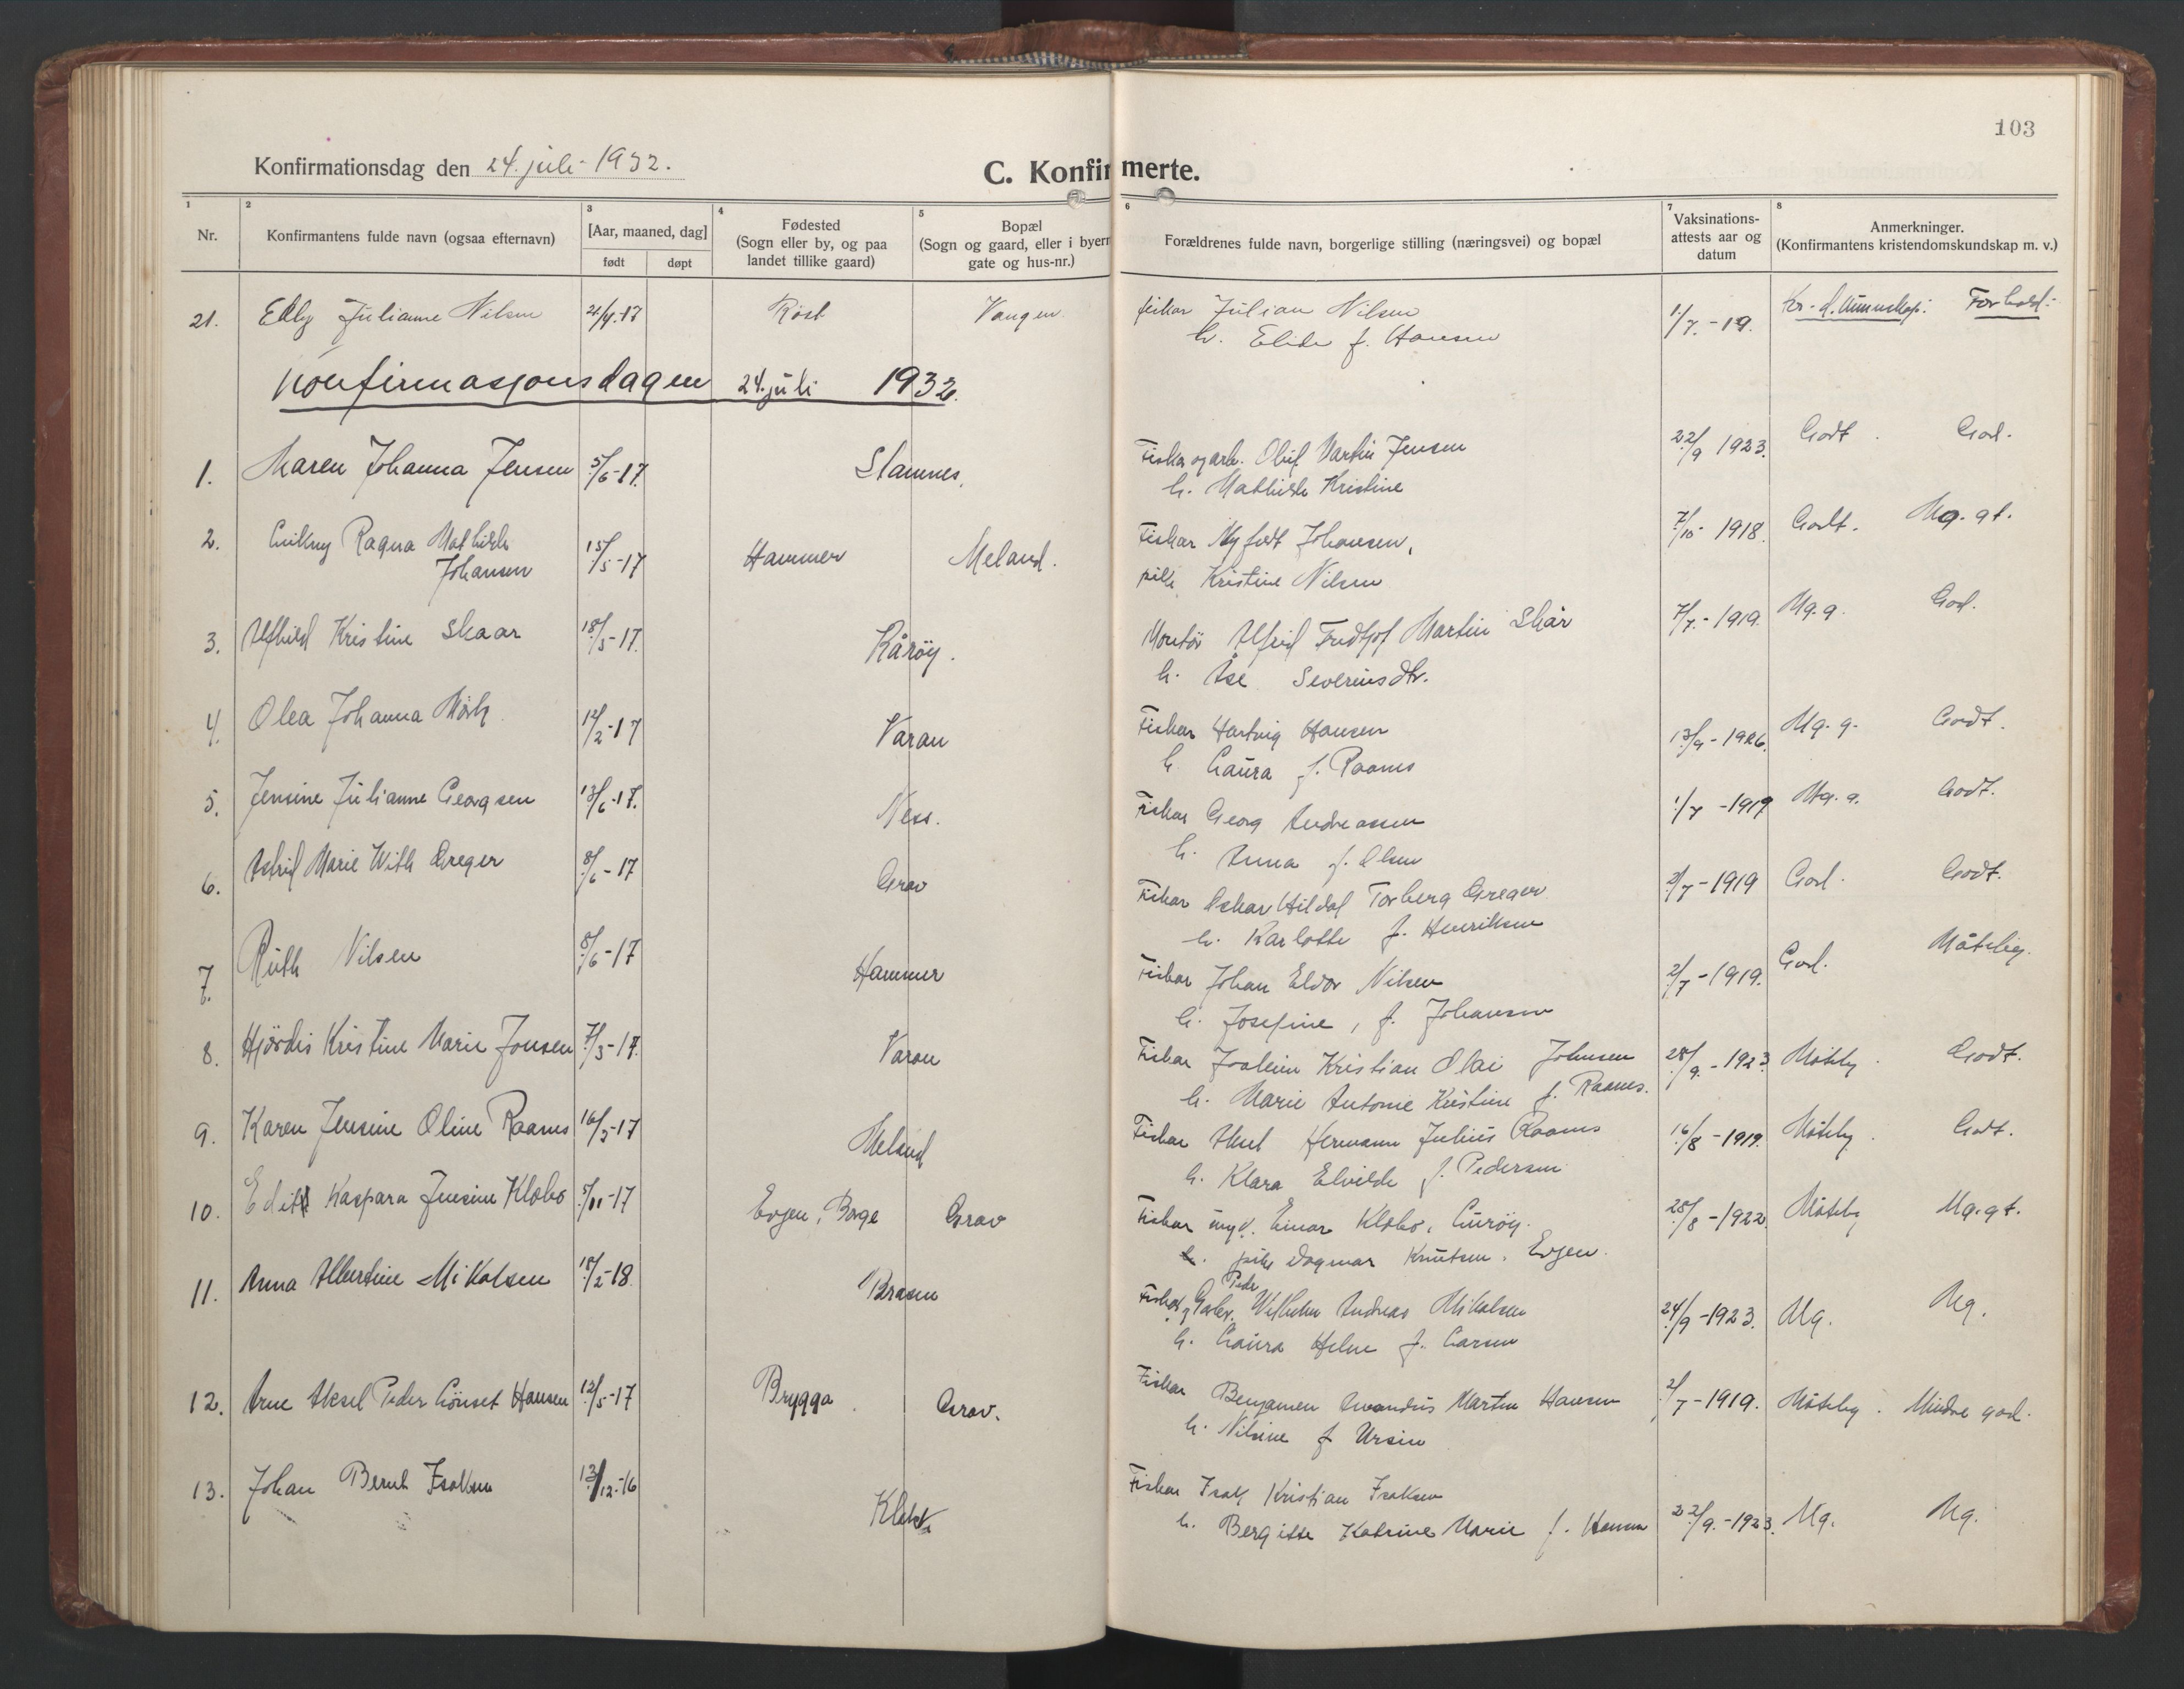 103
Konfirmationsdag den 24. juli - 1932.
C. Konfirmerte.
1 2 3 4 5 6 7 8
Nr.
Konfirmantens fulde navn (ogsaa efternavn)
[Aar, maaned, dag]
født døpt
Fødested
(Sogn eller by, og paa
landet tillike gaard)
Bopæl
(Sogn og gaard, eller i byern
gate og hus-nr.)
Forældrenes fulde navn, borgerlige stilling (næringsvei) og bopæl
Vaksinations-
attests aar og
datum
Anmerkninger.
(Konfirmantens kristendomskundskap m. v.)
21. Julianne Nilsen Röst Vangen fisker Julian Nilsen 1/7.-19. Forhold:
h. f. Hansen
Konfirmasjonsdagen 24. juli 1932.
1. Maren Johanna Jensen 5/6-17. Stamnes. Fisker og arb. Oluf Martin Jensen 22/9 1923. Godt. God.
h. Mathilde Kristine
2. Ragna Mathilde 15/5-17 Hammer Meland. Fisker Johansen, 7/10-1918. Godt. Mg. gt.
Johansen
pike Kristine Nilsen
3. Alfhild Kristine Skaar 18/5-17. Kårøy. Montør Alfred Fridtjof Martin Skår 7/7.-1919. Mg.g. God.
h. Åse Severinsdtr.
4. Olea Johanna 12/2-17 Varan Fisker Hartvig Hansen 13/9-1926. Mg.g. Godt.
h. Laura f. Raanes
5. Jensine Julianne Georgsen 13/6-17. Ness. Fisker Georg Andreassen 1/7-1919 Mg.g. Godt.
h. Anna f. Olsen
6. Astrid Marie With Greger 8/6-17 Grav Fisker Oskar Hildal Torberg Greger 2/7-1919 God. Godt.
h. Karlotte f. Henriksen
7. Ruth Nilsen 8/6-17 Hammer Fisker Johan Eldor Nilsen 2/7-1919. God. Måtelig.
h. Josefine, f. Johansen
8. Hjørdis Kristine Marie Jonsen 7/3-17. Varan Fisker Kristian Olai Johnsen 28/9.-1923 Måtelig. Godt.
h. Marie Antonie Kristine f. Raanes.
9. Karen Jensine Oline Raanes 16/5-17 Meland Fisker Hermann Julius Raanes 16/8-1919. Måtelig. Godt.
h. Klara Elvilde f. Pedersen
10. Edith Kaspara Jensine Klobo 5/11-17 Evjen, Borge Grav Fisker ung. Einar Klobo, Luröy. 28/8-1922. Måtelig Mg.gt.
pike Dagmar Knutsen. Evjen.
11. Anna Albertine Mikalsen 18/2-18. Brasen Fisker og Peder Wilhelm Andreas Mikalsen 24/9-1923. Mg. Mg.
h. Laura Helene f. Larsen
12. Arne Aksel Peder Lönset Hansen 12/5-17 Brygga Grav. Fisker Benjamen Martin Hansen 2/7-1919. Måtelig. Mindre god.
h. Nilsine f. Ursin
13. Johan Bernt Isaksen 13/12-16 Fisker Isak Kristian Isaksen
h. Bergitte Katrine Marie f. 22/9.-1923. Mg. Mg.